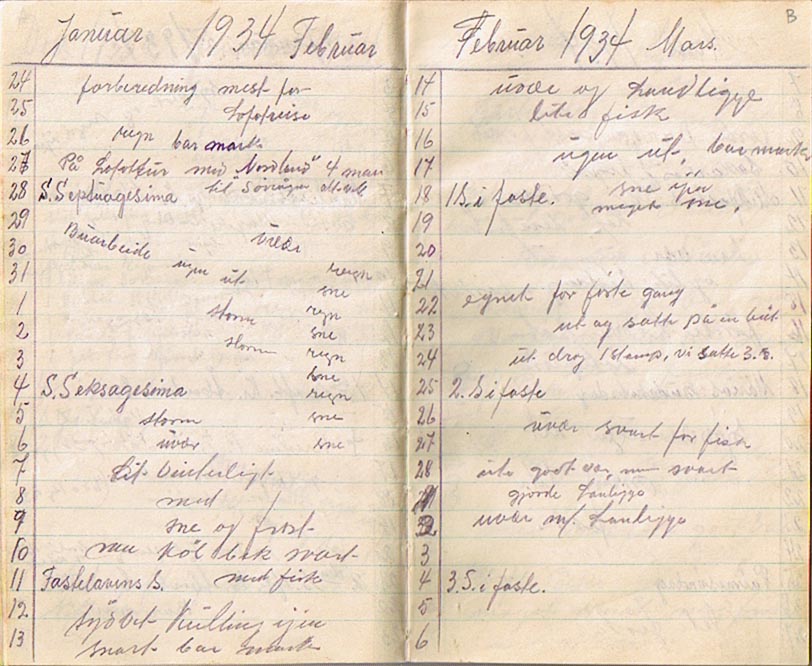 Januar 1934 Februar
24 forberedning mest for
25 Lofotreise
26 regn bar mark
27 På Lofottur med "Nordland" 4 man
28 S. Septuagesima til Sørvågen
29 uvær
30 Buarbeide
31 ugen ut regn
sne
1 storm regn
2 sne
3 storm regn
sne
4 S. Seksagesima regn
5 storm sne
6 uvær sne
7 Lit Vinterligt
8 med
9 sne og frost
10 men svart
11 Fastelavens S. med fisk
12 Kulling ijen
13 snart bar mark
Februar 1934 Mars.
B
14 uvær og Landligge
15 lite fisk
16 ugen ut, bar mark
17
18 1 S. i faste. sne ijen
19 meget sne.
20
21
22 egnet for første gang
23 ut og satte på en båt
24 ut drog 1 stamp, vi satte 3. s.
25 2. S i faste
26 uvær svart for fisk
27
28 ute godt vær, men svart
1 gjorde Landligge
2 uvær m/ Landligge
3
4 3. S. i faste.
5
6